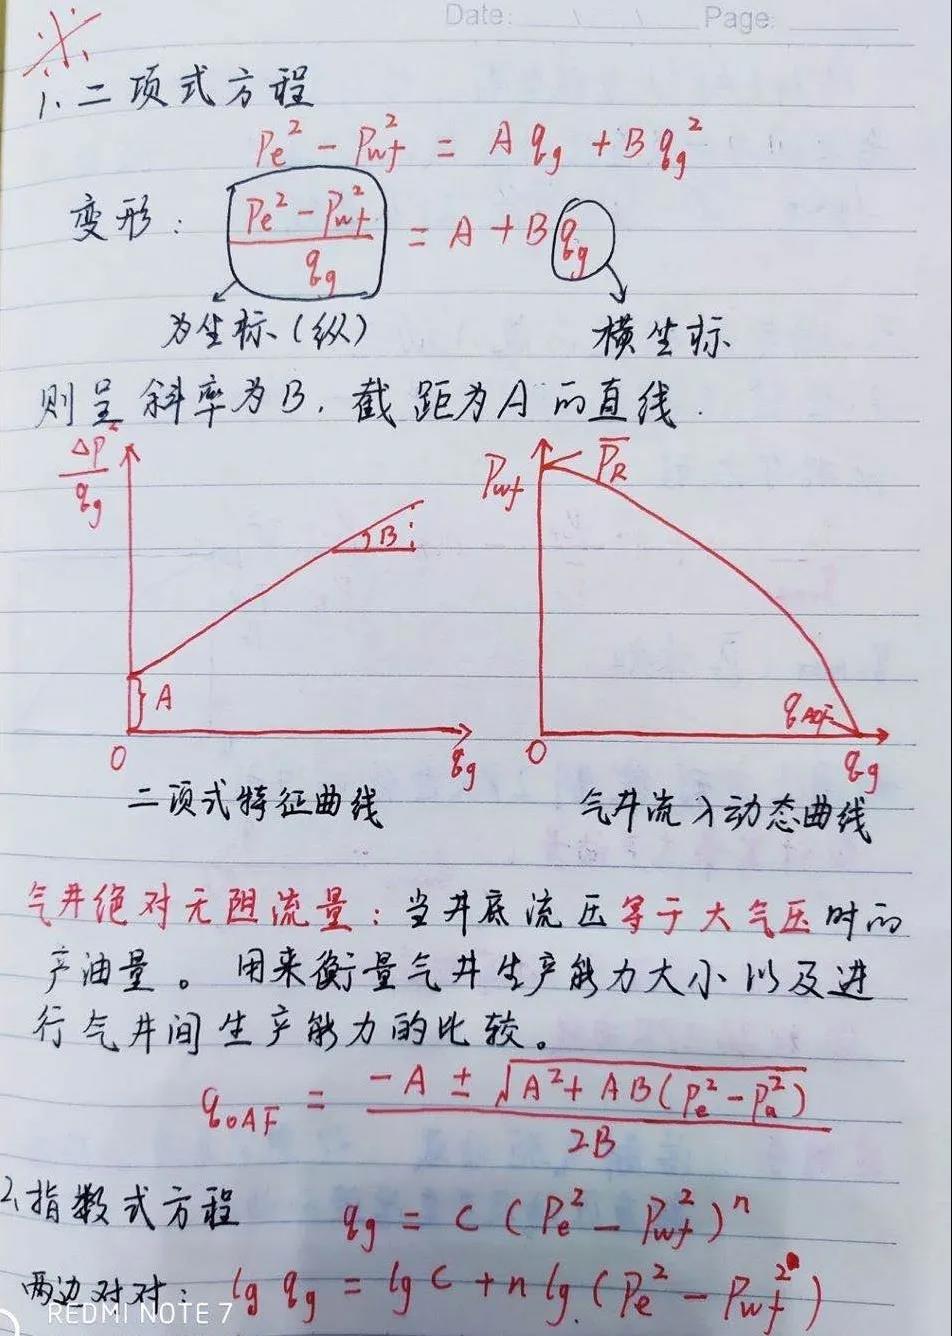 Date: / / Page:
※
1、二项式方程
Pe² - Pwf² = A qg + B qg²
变形: (Pe² - Pwf²)/qg = A + B qg
为坐标(纵) 横坐标
则呈斜率为B,截距为A的直线.
ΔP²/qg B A O qg
Pwf P̅R qAOF O qg
二项式特征曲线 气井流入动态曲线
气井绝对无阻流量:当井底流压等于大气压时的
产油量。用来衡量气井生产能力大小以及进
行气井间生产能力的比较。
qoAF = (-A ± √(A² + AB(Pe² - Pa²)))/2B
2、指数式方程 qg = C (Pe² - Pwf²)ⁿ
两边对对: lg qg = lg C + n lg (Pe² - Pwf²)
REDMI NOTE 7